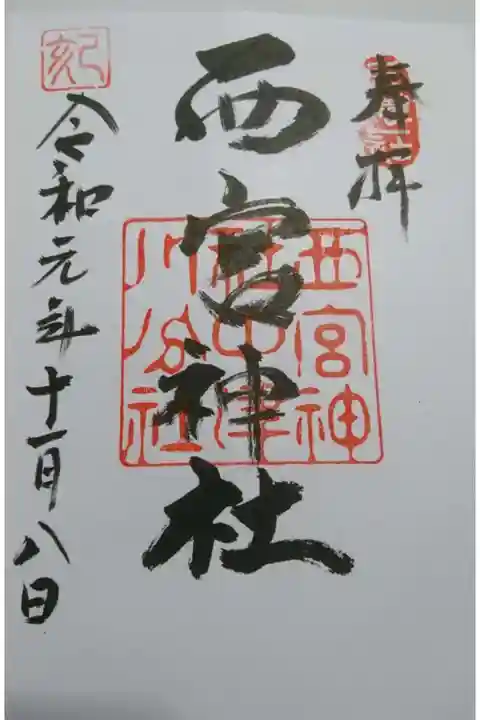 奉拝
西宮神社
西宮神
社中津
川分社
令和元年十一月八日
己亥